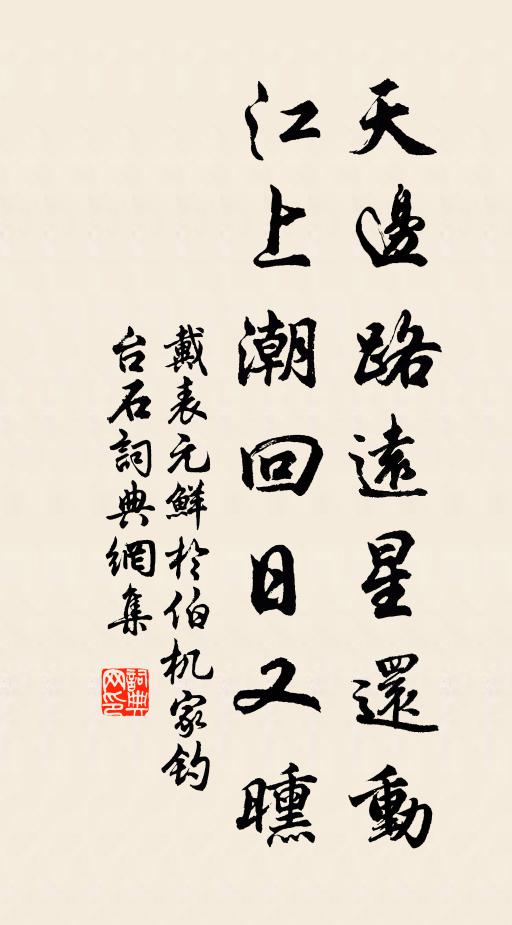 天邊路遠星還動
江上潮回日又曛
戴表元鮮於伯机家鈞
台石詞典網集
詞典网印